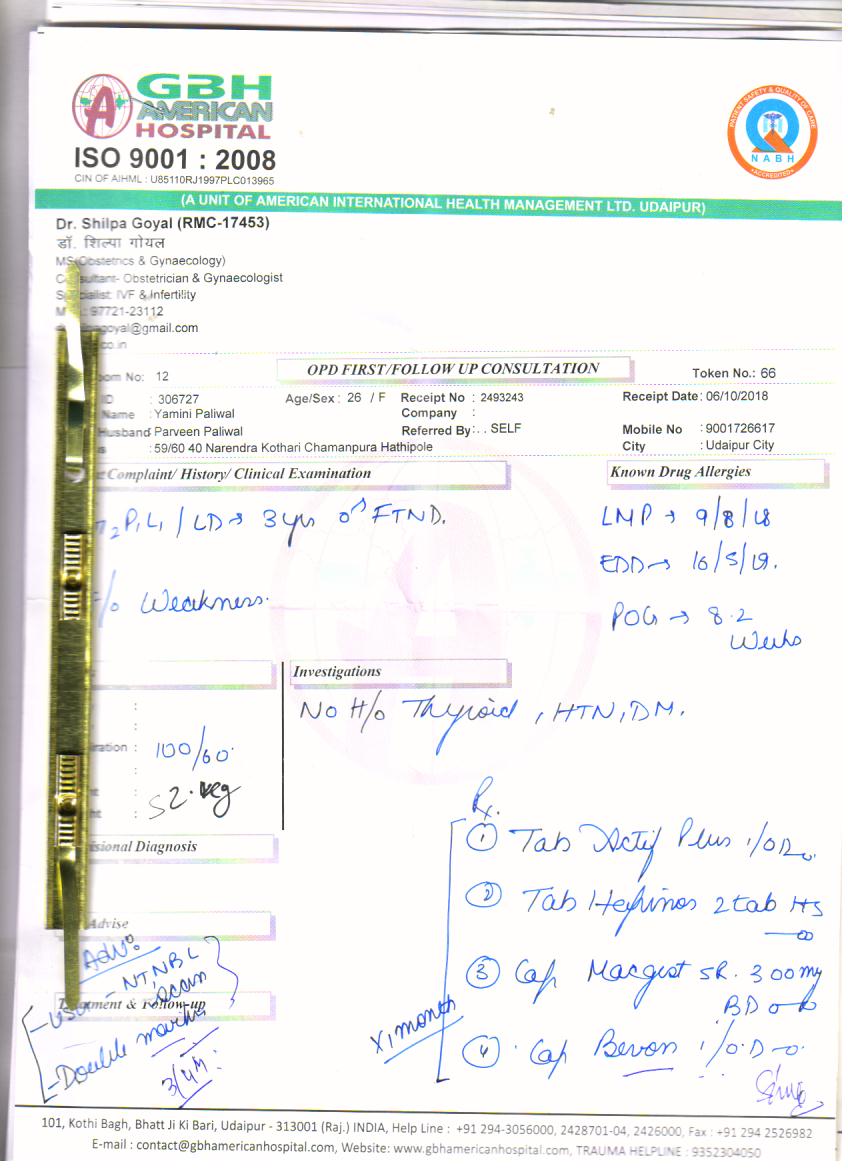 GBH
AMERICAN
HOSPITAL
ISO 9001 : 2008
CIN OF AIHML : U85110RJ1997PLC013965
PATIENT SAFETY & QUALITY OF CARE
NABH
ACCREDITED
(A UNIT OF AMERICAN INTERNATIONAL HEALTH MANAGEMENT LTD. UDAIPUR)
Dr. Shilpa Goyal (RMC-17453)
डॉ. शिल्पा गोयल
MS (Obstetrics & Gynaecology)
Consultant- Obstetrician & Gynaecologist
Specialist: IVF & Infertility
97721-23112
goyal@gmail.com
co.in
OPD FIRST/FOLLOW UP CONSULTATION
Token No.: 66
No: 12
ID : 306727 Age/Sex : 26 / F Receipt No : 2493243 Receipt Date: 06/10/2018
Name : Yamini Paliwal Company :
Husband : Parveen Paliwal Referred By : . . SELF Mobile No : 9001726617
: 59/60 40 Narendra Kothari Chamanpura Hathipole City : Udaipur City
Complaint/ History/ Clinical Examination Known Drug Allergies
P1L1 / LD → 3 yrs ♂ FTND. LMP → 9/8/18
EDD → 16/5/19.
Weakness. POG → 8.2
Weeks
Investigations
No H/o Thyroid, HTN, DM.
100/60
52. kg
Rx.
Diagnosis
① Tab Plus 1/OD
② Tab 2 tab HS
Advise
Adv:
③ Cap Macgest SR. 300 mg
BD
- NT, NBL
scan
Treatment & Follow-up
- Double
x 1 month
④ Cap Bevon 1/O.D
101, Kothi Bagh, Bhatt Ji Ki Bari, Udaipur - 313001 (Raj.) INDIA, Help Line : +91 294-3056000, 2428701-04, 2426000, Fax : +91 294 2526982
E-mail : contact@gbhamericanhospital.com, Website: www.gbhamericanhospital.com, TRAUMA HELPLINE : 9352304050